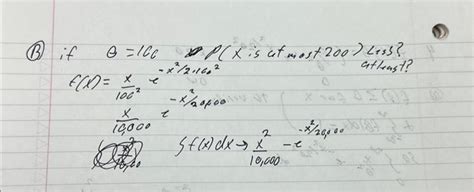 B if θ = 100 P(X is at most 200) Less? at least?
f(x) = x/100² e^(-x²/2·100²)
x/10,000 e^(-x²/20,000)
∫f(x)dx → x²/10,000 - e^(-x²/20,000)